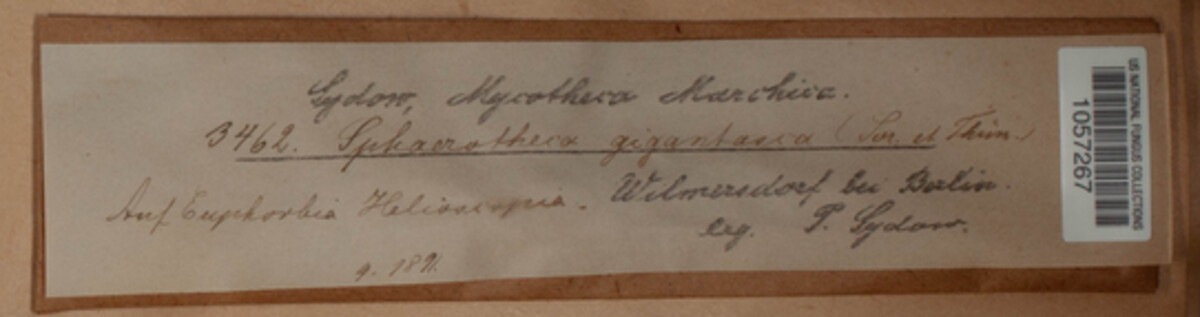 Sydow, Mycotheca Marchica.
3462. Sphaerotheca gigantasca (Sor. et Thüm.)
Auf Euphorbia Helioscopia. Wilmersdorf bei Berlin.
leg. P. Sydow.
9. 1891.
US NATIONAL FUNGUS COLLECTIONS
1057267